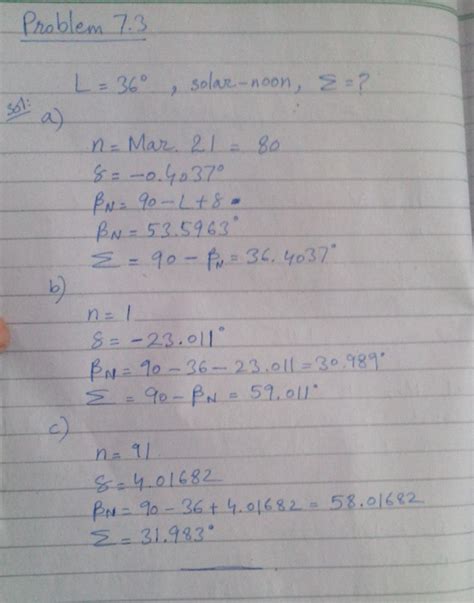 Problem 7.3
L = 36° , solar-noon, Σ = ?
Sol:
a)
n = Mar. 21 = 80
δ = -0.4037°
βN = 90 - L + δ
βN = 53.5963°
Σ = 90 - βN = 36.4037°
b)
n = 1
δ = -23.011°
βN = 90 - 36 - 23.011 = 30.989°
Σ = 90 - βN = 59.011°
c)
n = 91
δ = 4.01682
βN = 90 - 36 + 4.01682 = 58.01682
Σ = 31.983°